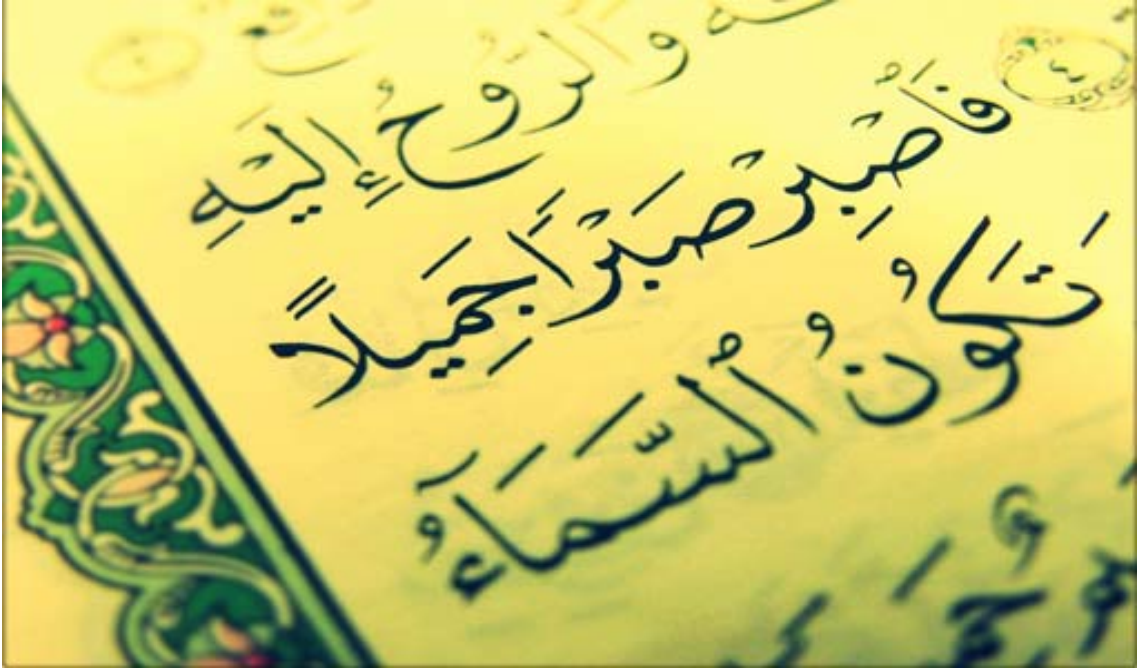 وَٱلرُّوحُ إِلَيۡهِ
٤ فَٱصۡبِرۡ صَبۡرٗا جَمِيلًا
تَكُونُ ٱلسَّمَآءُ